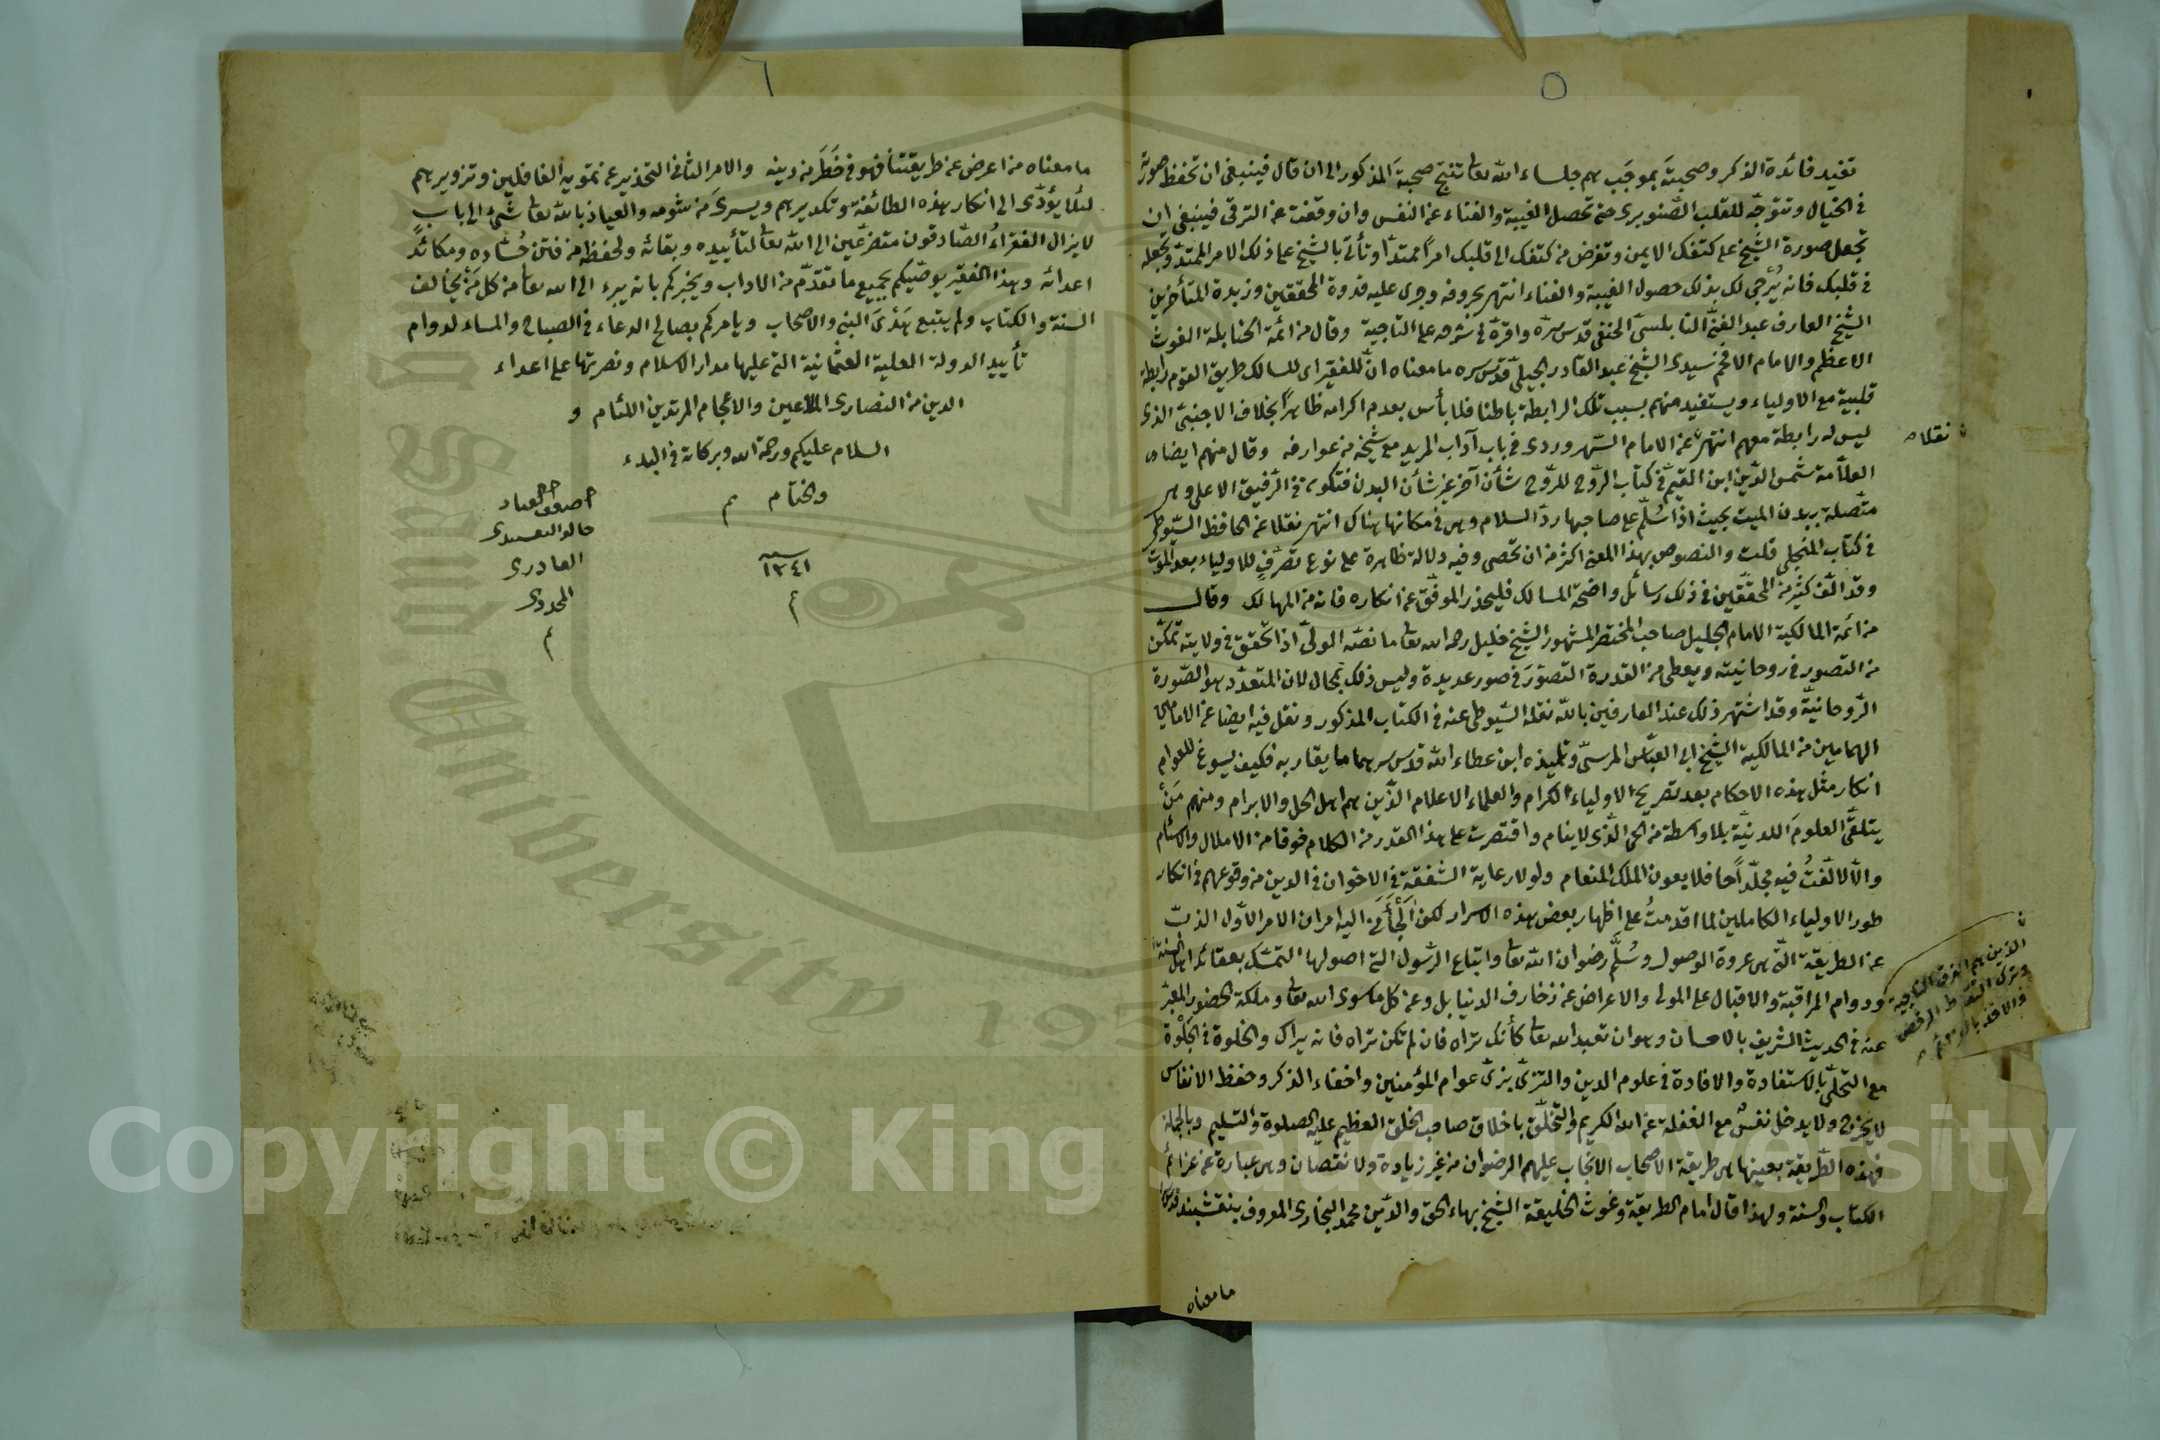 ٥
تفيد فائدة الذكر وصحبته بموجب هم جلساء الله تعا تنتج صحبة المذكور الى ان قال فينبغى ان تحفظ صورته
فى الخيال وتتوجّه للقلب الصّنوبرى حتى تحصل الغيبة والفناء عن النفس وان وقفت عن الترقى فينبغى ان
تجعل صورة الشيخ على كتفك الايمن وتفرض من كتفك الى قلبك امراً ممتدّا وتأتى بالشيخ على ذلك الامر الممتدّ وتجعله
فى قلبك فانه يُرْجى لك بذلك حصول الغيبة والفناء انتهى بحروفه وجرى عليه قدوة المحققين وزبدة المتأخرين
الشيخ العارف عبد الغنى النابلسى الحنفى قدس سره واقرّه فى شرحه على التاجية وقال من ائمة الحنابلة الغوث
الاعظم والامام الافخم سيدى الشيخ عبد القادر الجيلى قدس سره ما معناه ان للفقير اى للسالك طريق القوم رابطة
قلبية مع الاولياء ويستفيد منهم بسبب تلك الرابطة باطنا فلا بأس بعدم اكرامه ظاهراً بخلاف الاجنبى الذى
ليس له رابطة معهم انتهى عن الامام السّهروردى فى باب آداب المريد مع شيخه من عوارفه وقال منهم ايضا
نقلا
العلّامة شمس الدّين ابن القيّم فى كتاب الرّوح للرّوح شأن آخر غير شأن البدن فتكون فى الرّفيق الاعلى وهى
متّصلة ببدن الميت بحيث اذا سُلّم على صاحبها ردّ السلام وهى فى مكانها هناك انتهى نقلا عن الحافظ السّيوطى
فى كتاب المنجلى قلت والنصوص بهذا المعنى اكثر من ان تحصى وفيه دلالة ظاهرة على نوع تصرّفٍ للاولياء بعد الموت
وقد الّف كثير من المحققين فى ذلك رسائل واضحة المسالك فليحذر الموفّق عن انكاره فانه من المهالك وقال
من ائمة المالكية الامام الجليل صاحب المختصر المشهور الشيخ خليل رحمه الله تعا ما نصّه الولىّ اذا تحقق فى ولايته تمكّن
من التصور فى روحانيته ويعطى من القدرة التصوّر فى صور عديدة وليس ذلك بمحال لان المتعدّد هو الصّورة
الرّوحانيّة وقد اشتهر ذلك عند العارفين بالله نقله السّيوطى عنه فى الكتاب المذكور ونقل فيه ايضا عن الامامين
الهمامين من المالكية الشيخ ابى العبّاس المرسىّ وتلميذه ابن عطاء الله قدس سرهما ما يقاربه فكيف يسوغ للعوام
انكار مثل هذه الاحكام بعد تصريح الاولياء الكرام والعلماء الاعلام الذّين هم اهل الحل والابرام ومنهم مَنْ
يتلقّى العلومَ اللدنيّة بلا واسطة من الحى الذّى لا ينام واقتصرت على هذا القدر من الكلام خوفا من الاملال والاسئام
والّا لالّفتُ فيه مجلّداً حافلا بعون الملك المنعام ولولا رعاية الشفقة فى الاخوان فى الدين من وقوعهم فى انكار
طور الاولياء الكاملين لما اقدمتُ على اظهار بعض هذه الاسرار لكن اَلْجَأَنى اليه امران الامر الاوّل الذبّ
عن الطريقة التّى هى عروة الوصول وسُلَّم رضوان الله تعا واتباع الرّسول التى اصولها التمسّك بعقائد اهل السنة
الذين هم الفرق الناجية
وترك التقاط الرخص
والاخذ بالعزائم
ودوام المراقبة والاقبال على المولى والاعراض عن زخارف الدنيا بل وعن كل ما سوى الله تعا وملكة الحضور المعبّر
عنه فى الحديث الشريف بالاحسان وهو ان تعبد الله تعا كأنك تراه فان لم تكن تراه فانه يراك والخلوة فى الجَلْوة
مع التحلّى بالاستفادة والافادة فى علوم الدين والتزىّ بزىّ عوام المؤمنين واخفاء الذكر وحفظ الانفاس
لا يخرج ولا يدخل نفسٌ مع الغفلة عن الله الكريم والتخلّق باخلاق صاحب الخلق العظيم عليه الصلوة والتسليم وبالجملة
فهذه الطّريقة بعينها هى طريقة الاصحاب الانجاب عليهم الرضوان من غير زيادة ولا نقصان وهى عبارة عن عزائم
الكتاب والسنة ولهذا قال امام الطريقة وغوث الخليقة الشيخ بهاء الحق والدّين محمد البخارى المعروف بنقشبند قدس سره
ما معناه
٦
ما معناه من اعرض عن طريقتنا فهو فى خَطَرٍ من دينه والامر الثانى التحذير عن تمويه الغافلين وتزويرهم
لئلا يؤدّى الى انكار هذه الطائفة وتكديرهم ويسرى من شومه والعياذ بالله تعا شئ الى باب
لا يزال الفقراءُ الصّادقون متضرّعين الى الله تعا لتأييده وبقائه ولحفظه من فتن حُسّاده ومكائد
اعدائه وهذا الفقير يوصّيكم بجميع ما تقدّم من الاداب ويخبركم بانه يبرء الى الله تعا من كل مَنْ يخالف
السنة والكتاب ولم يتبع هَدْىَ النبى والاصحاب ويامركم بصالح الدعاء فى الصباح والمساء لدوام
تأييد الدولة العلية العثمانية التى عليها مدار الاسلام ونصرتها على اعداء
الدين من النصارى الملاعين والاعجام المرتدين اللئام و
السلام عليكم ورحمة الله وبركاته فى البدء
والختام م
احقر العباد
خالد النقشبندى
القادرى
المجددى
م
سنة ١٣٤١
م
Copyright © King Saud University
King Saud University 1957